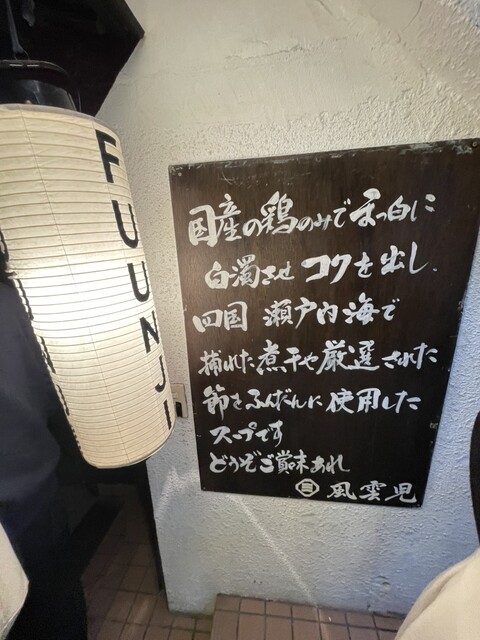 FUUNJI
国産の鶏のみで真っ白に
白濁させコクを出し、
四国 瀬戸内海で
捕れた煮干や厳選された
節をふんだんに使用した
スープです
どうぞご賞味あれ
㊂ 風雲児